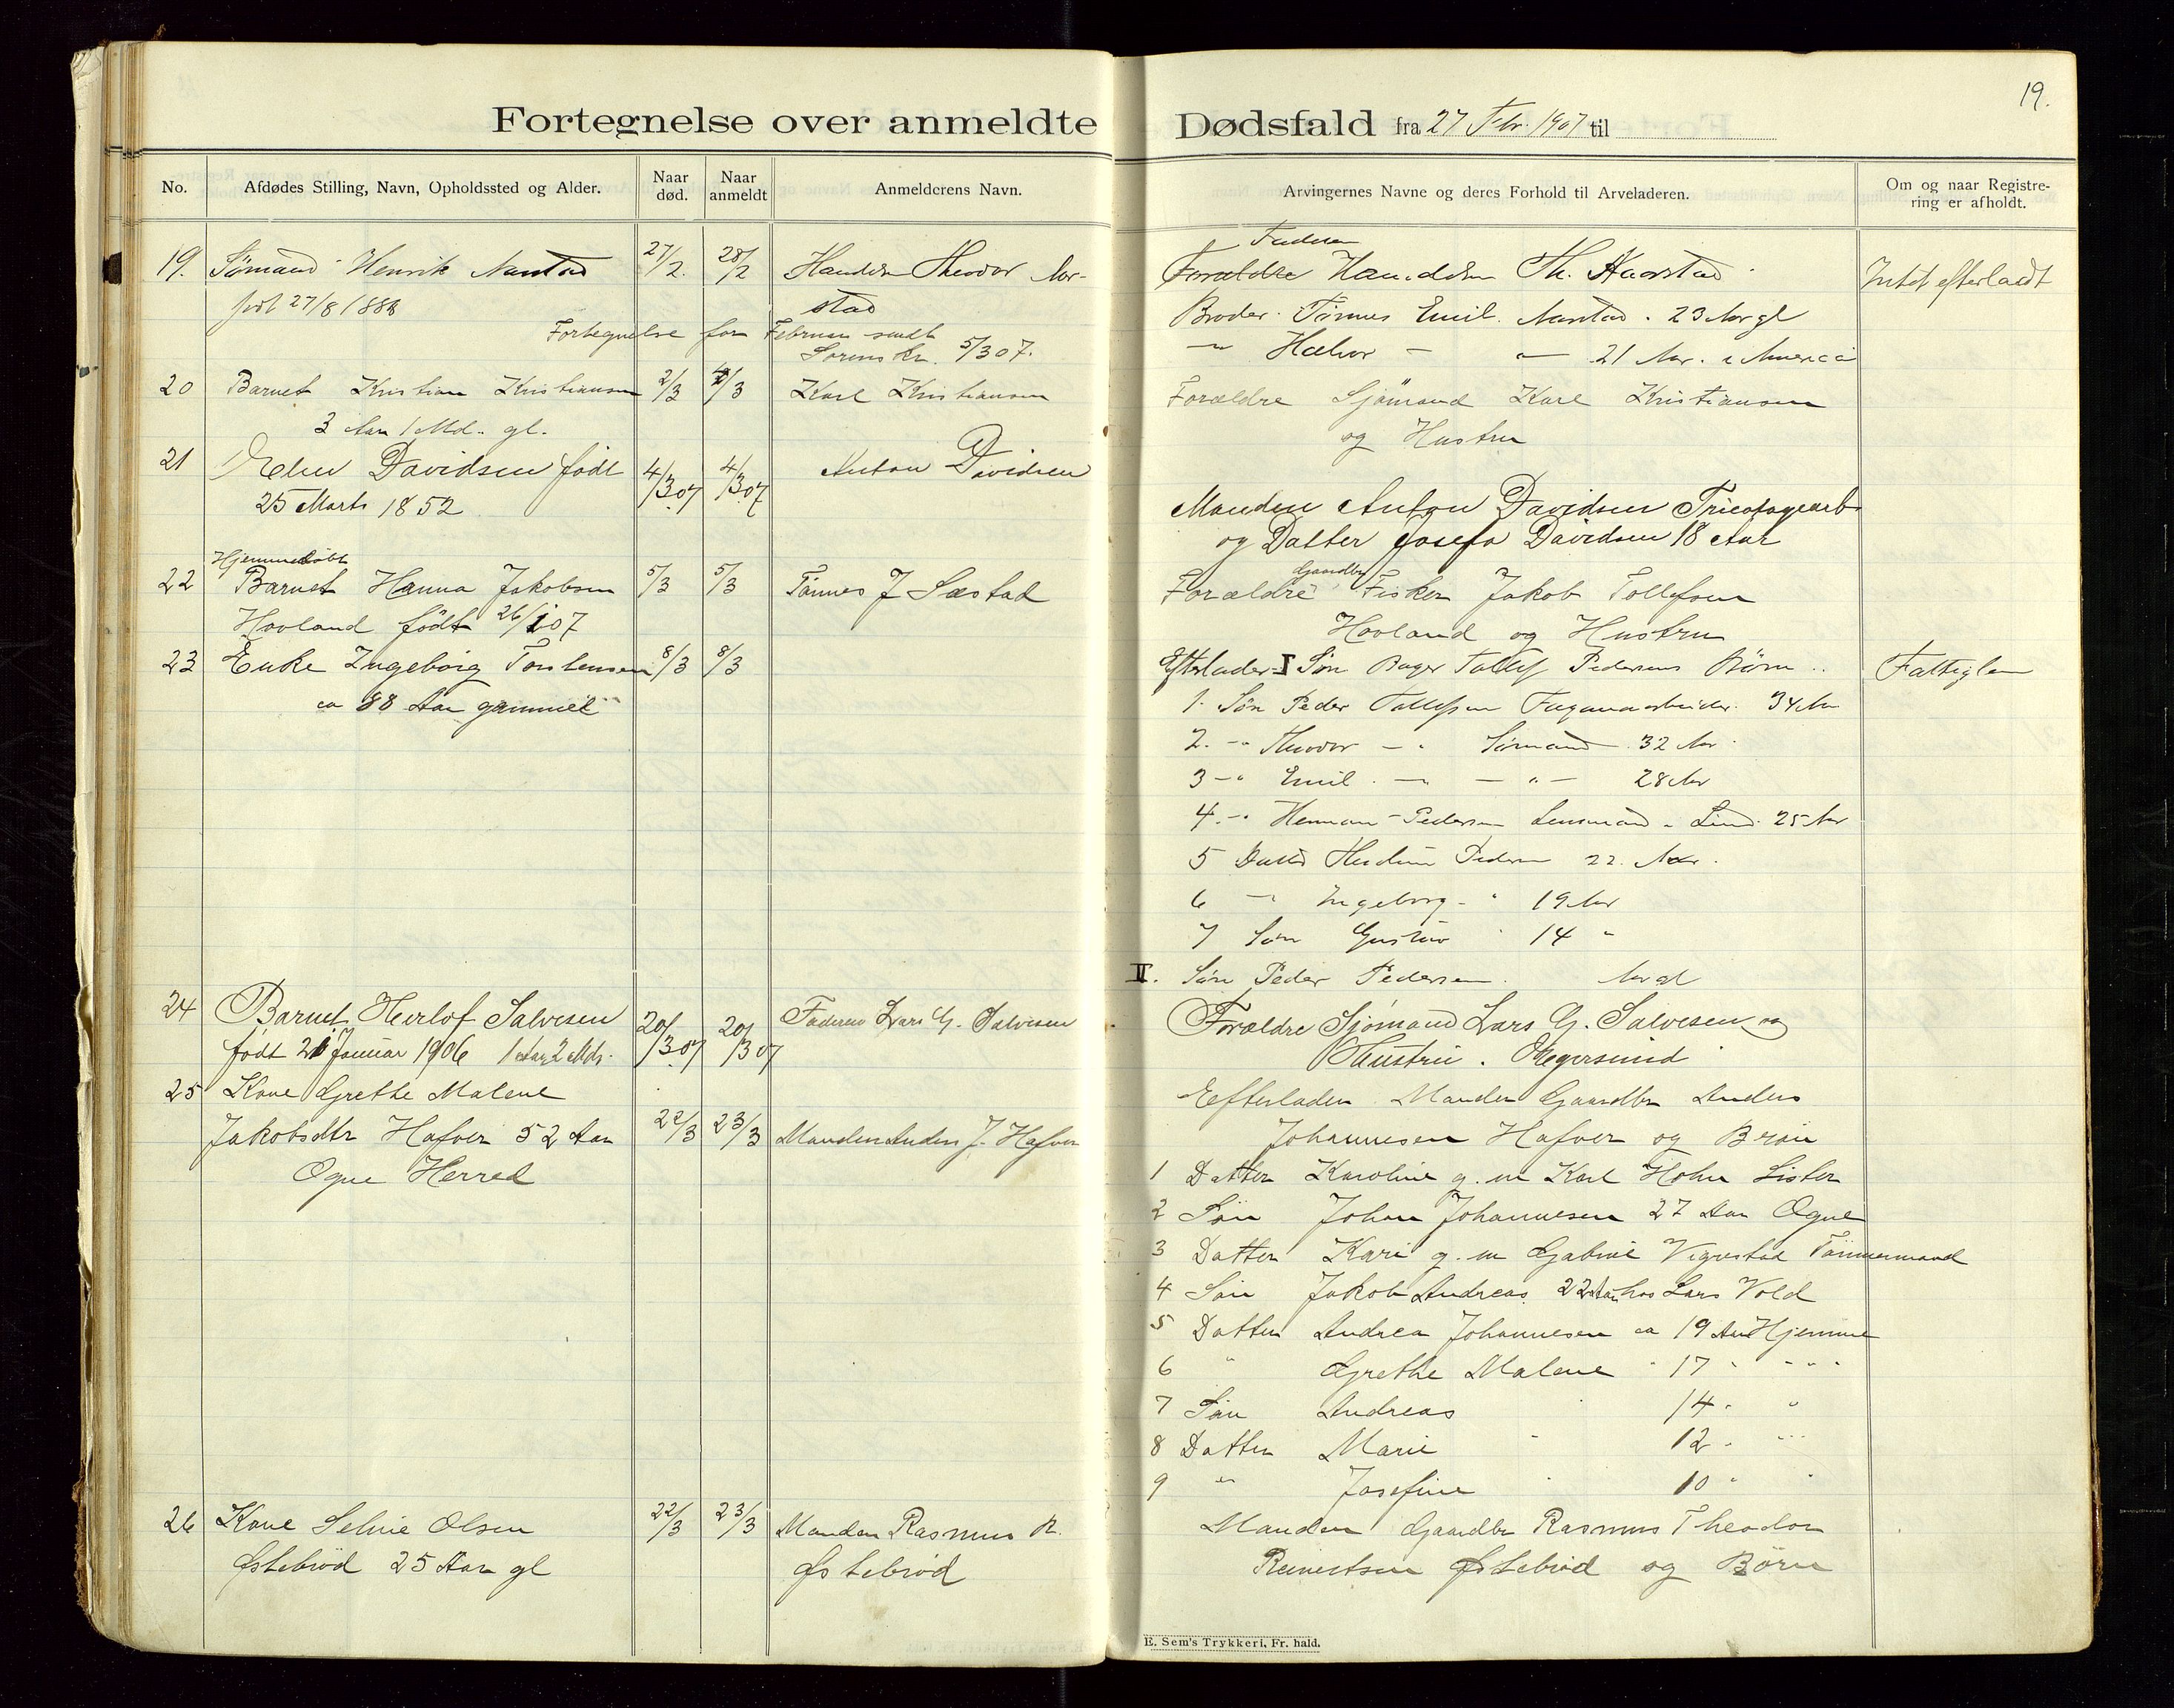 19.
Fortegnelse over anmeldte Dødsfald fra 27 Febr. 1907 til
No. Afdødes Stilling, Navn, Opholdssted og Alder. Naar død. Naar anmeldt Anmelderens Navn. Arvingernes Navne og deres Forhold til Arveladeren. Om og naar Registrering er afholdt.
19. Sømand Henrik 27/2. 28/2
født 27/8 188
stad
Fortegnelse for Februar sendt
Sorenskr. 5/3 07.
20 Barnet Kristian Kristiansen 2/3 /3 Karl Kristiansen
3 Aar 1 Md. gl.
21 Elen Davidsen født 4/3.07 4/3.07 Anton Davidsen
25 Marts 1852
Hjemmedøbt
22 Barnet Hanna Jakobsen 5/3 5/3 Tønnes J Sæstad
Hovland født 26/1 07
23 Enke Ingeborg Torstensen 8/3 8/3
ca 88 Aar gammel
24 Barnet Herlof Salvesen 20/3.07 20/3 07 Faderen Lars G. Salvesen
født 21 Januar 1906 1 Aar 2 Mdr.
25 Kone Grethe Malene
Jakobsdtr Hafver 52 Aar 22/3 23/3 Manden Anders J. Hafver
Ogne Herred
26 Kone Selvie Olsen 22/3 23/3 Manden Rasmus R.
Østebrød 25 Aar gl Østebrød
Faderen
Forældre Th. Intet efterladt
Broder Tønnes Emil 23 Aar gl
21 Aar. i America
Forældre Sjømand Karl Kristiansen
og Hustru
Manden Anton Davidsen Tricotagearb
og Datter Josefa Davidsen 18 Aar
Gaardbr
Forældre Fisker Jakob Tollefsen
Hovland og Hustru
Efterlader I Søn Bager Tollef Pedersens Børn .. Fattiglem
1. Søn Peder Tollefsen 34 Aar
2. -"- Theodor -"- Sømand 32 Aar
3 -"- Emil -"- -"- 28 Aar
4. -"- Herman Pedersen 25 Aar
5 Datter Pedersen 22 Aar.
6 -"- Ingeborg -"- 19 Aar
7 Søn Gustav " 14 "
II. Søn Peder Pedersen. Aar gl
Forældre Sjømand Lars G. Salvesen og
Hustru. Egersund
Efterlader Manden Gaardbr Anders
Johannesen Hafver og Børn
1 Datter Karoline g. m Karl Holm Lister
2 Søn Johan Johannesen 27 Aar Ogne
3 Datter Kari g. m Gabriel Vigrestad Tømmermand
4 Søn Jakob Andreas 22 Aar hos Lars Vold
5 Datter Andrea Johannesen ca 19 Aar Hjemme
6 " Grethe Malene " 17 " "
7 Søn Andreas " 14 " "
8 Datter Marie " 12 " "
9 " Josefine " 10 " "
Manden Gaardbr Rasmus Theodor
Reinertsen Østebrød og Børn
E. Sem's Trykkeri, Fr. hald.